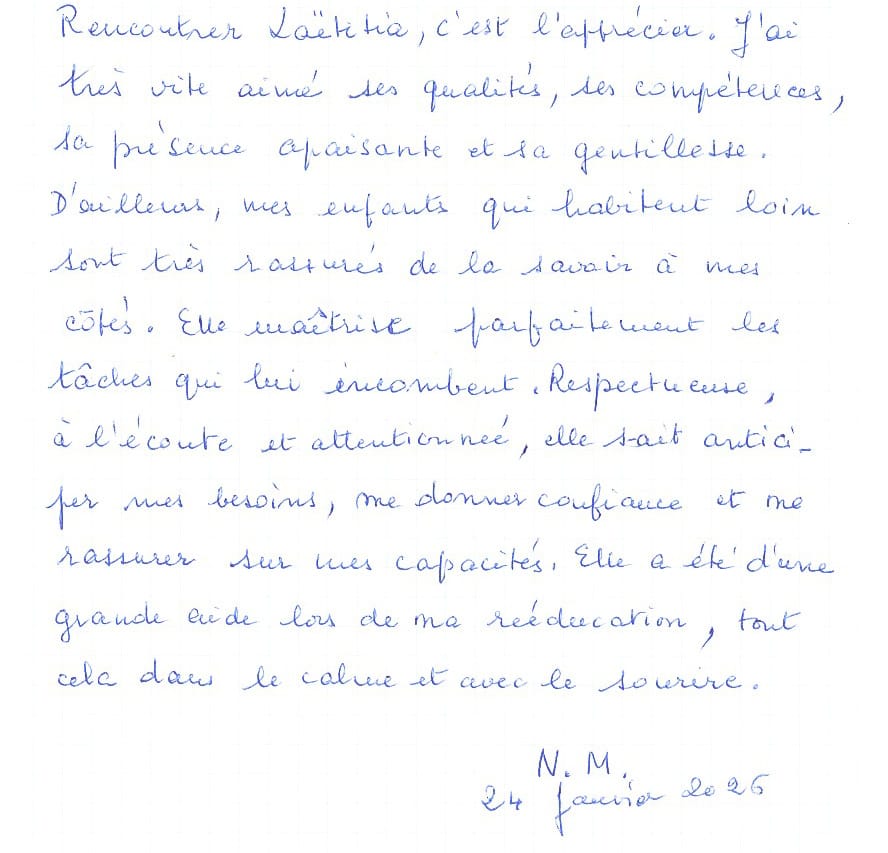 Rencontrer Laëtitia, c'est l'apprécier. J'ai
très vite aimé ses qualités, ses compétences,
sa présence apaisante et sa gentillesse.
D'ailleurs, mes enfants qui habitent loin
sont très rassurés de la savoir à mes
côtés. Elle maîtrise parfaitement les
tâches qui lui incombent. Respectueuse,
à l'écoute et attentionneé, elle sait antici-
per mes besoins, me donner confiance et me
rassurer sur mes capacités. Elle a été d'une
grande aide lors de ma rééducation, tout
cela dans le calme et avec le sourire.
N. M.
24 janvier 2026